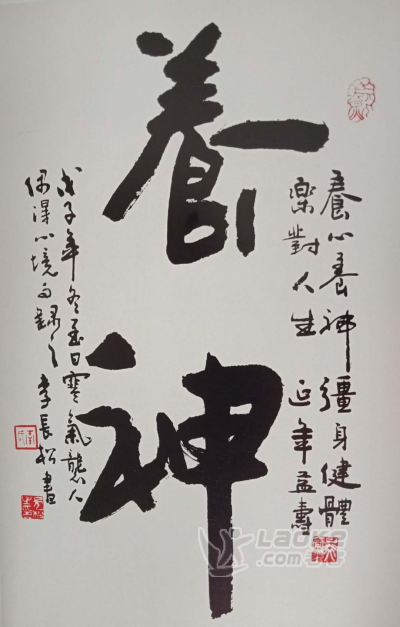 養神
養心養神彊身健體
樂對人生延年益壽
戊子年冬至日寒氣襲人
偶得心境而錄之李長松書